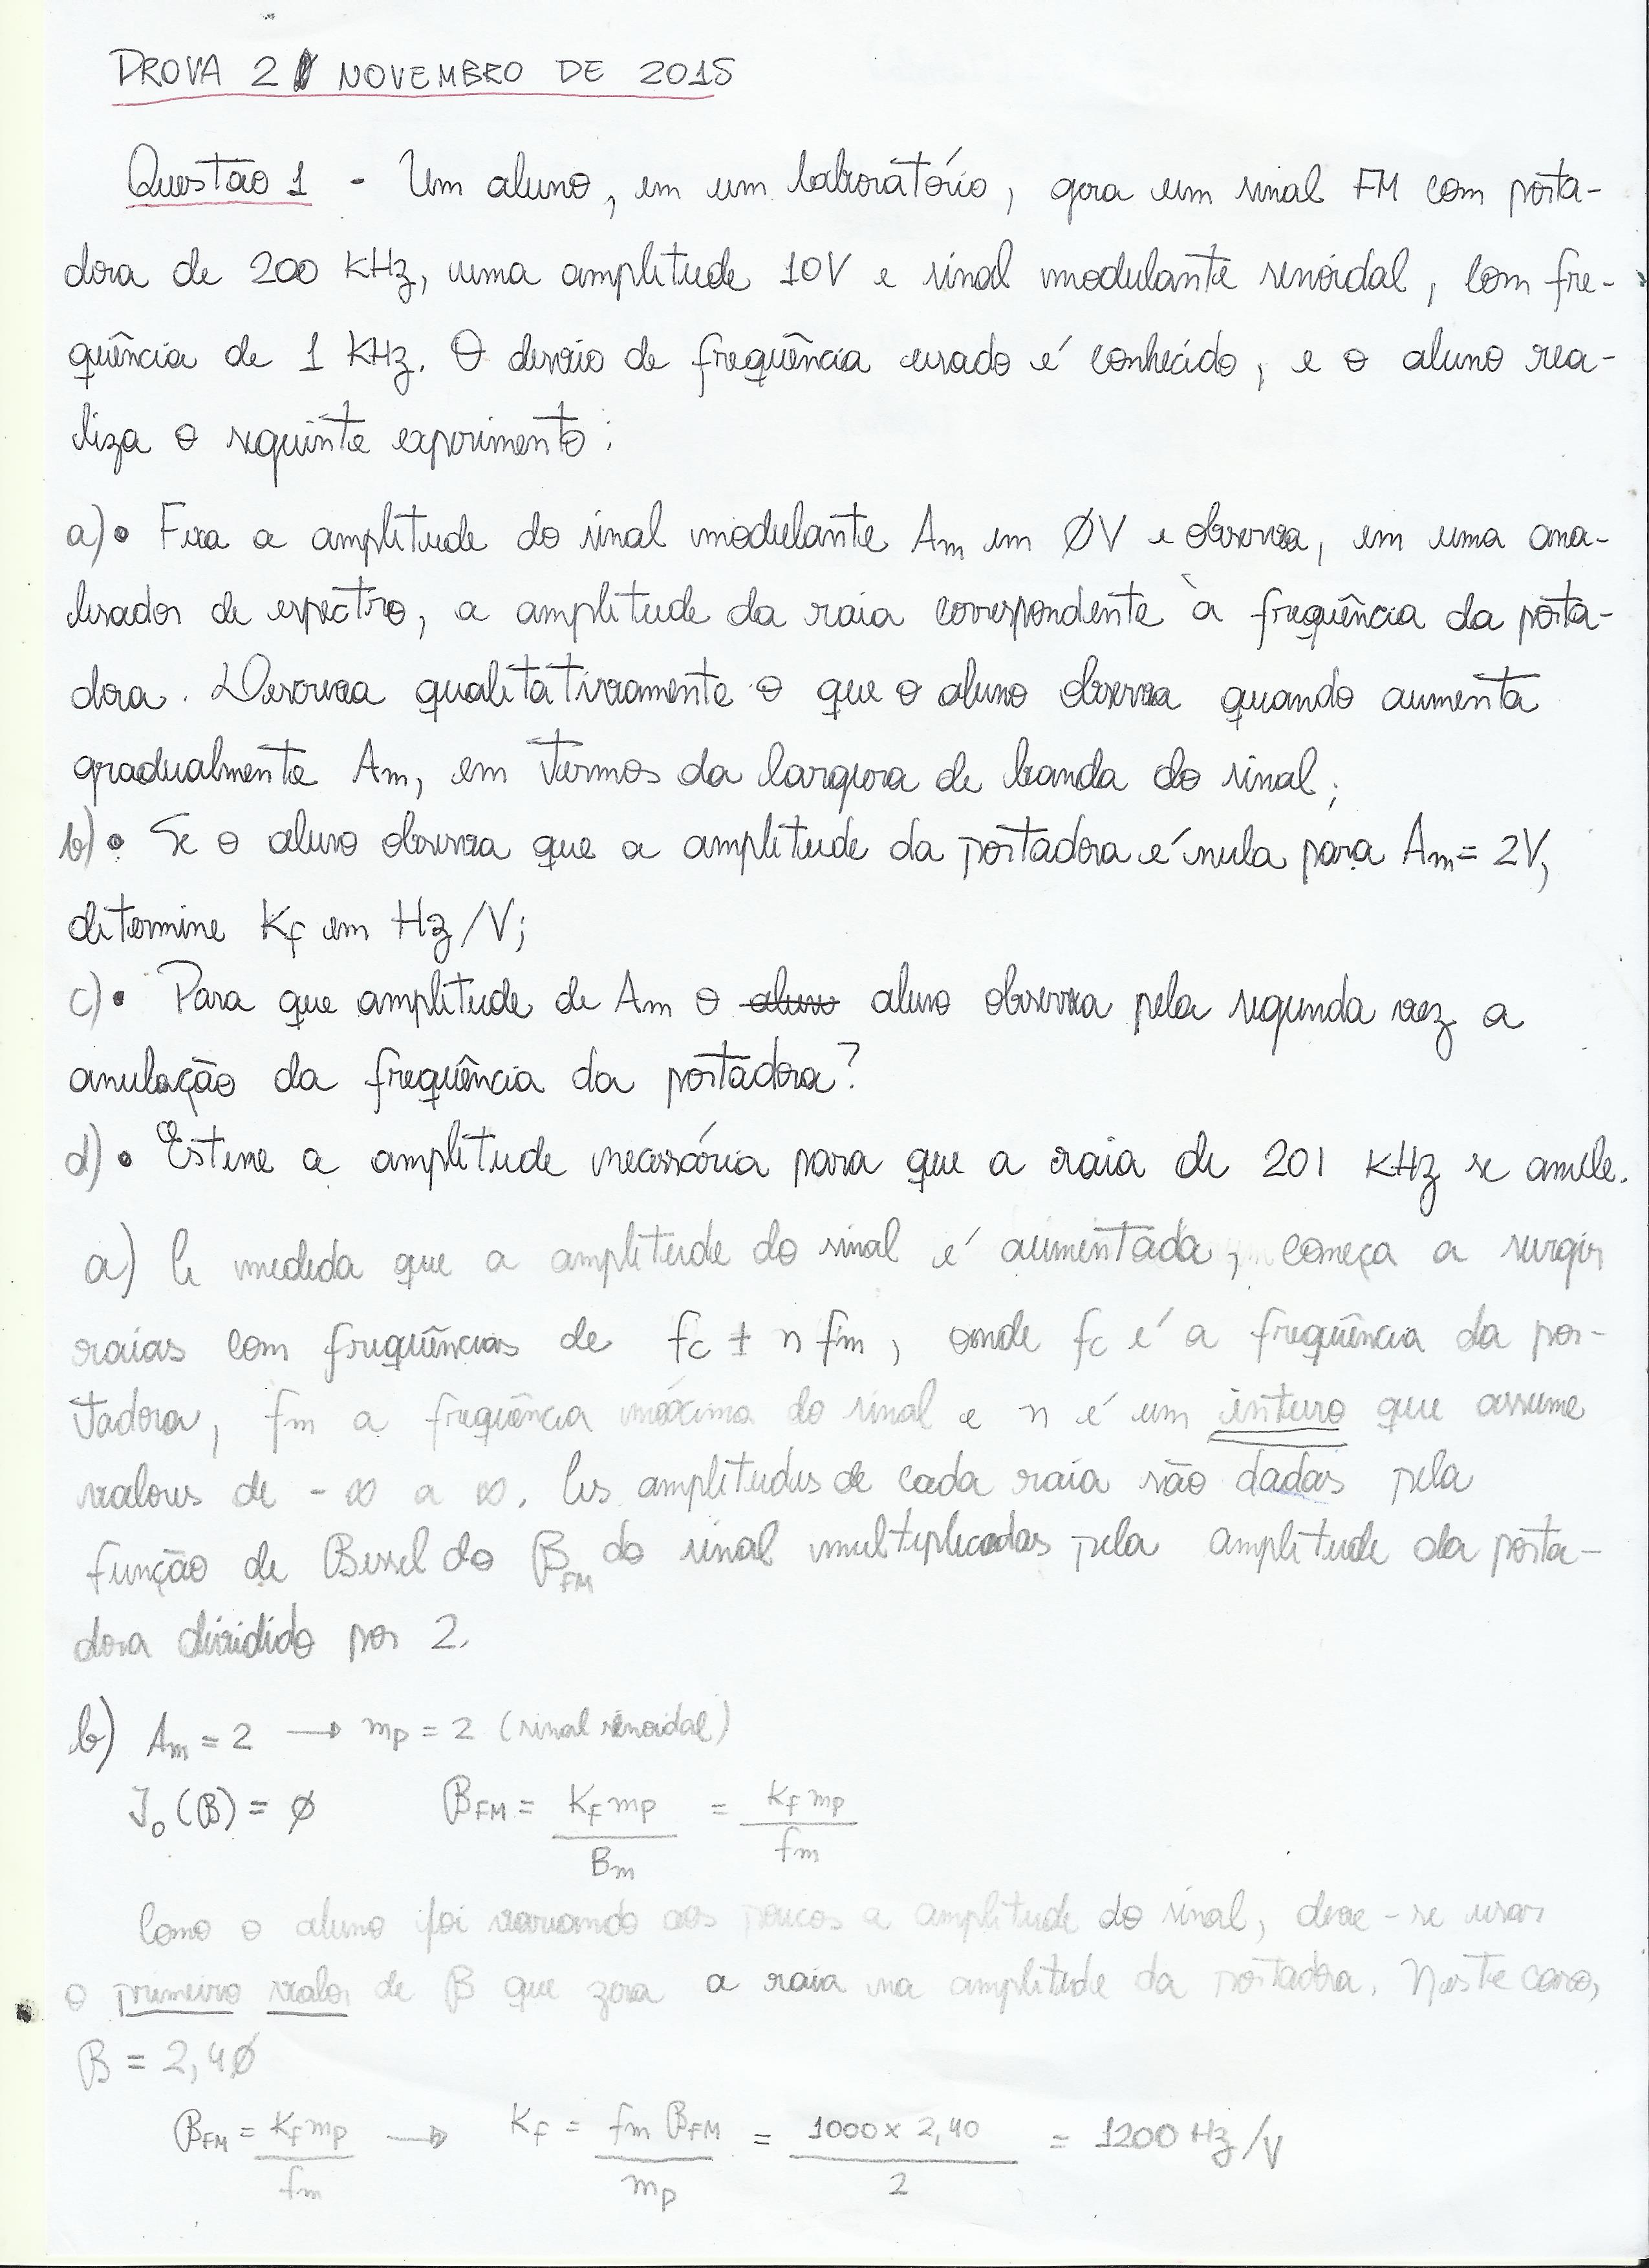 PROVA 2 NOVEMBRO DE 2015
Questão 1 - Um aluno, em um laboratório, gera um sinal FM com porta-
dora de 200 KHz, uma amplitude 10V e sinal modulante senoidal, com fre-
quência de 1 KHz. O desvio de frequência usado é conhecido, e o aluno rea-
liza o seguinte experimento:
a) • Fixa a amplitude do sinal modulante Am em ØV e observa, em uma ana-
lisador de espectro, a amplitude da raia correspondente à frequência da porta-
dora. Descreva qualitativamente o que o aluno observa quando aumenta
gradualmente Am, em termos da largura de banda do sinal;
b) • Se o aluno observa que a amplitude da portadora é nula para Am = 2V,
determine Kf em Hz/V;
c) • Para que amplitude de Am o aluno aluno observa pela segunda vez a
anulação da frequência da portadora?
d) • Estime a amplitude necessária para que a raia de 201 KHz se anule.
a) A medida que a amplitude do sinal é aumentada, começa a surgir
raias com frequências de fc ± n fm, onde fc é a frequência da por-
tadora, fm a frequência máxima do sinal e n é um inteiro que assume
valores de -∞ a ∞. As amplitudes de cada raia são dadas pela
função de Bessel do βFM do sinal multiplicadas pela amplitude da porta-
dora dividido por 2.
b) Am = 2 → mp = 2 (sinal senoidal)
J₀(β) = Ø βFM = Kf mp / Bm = Kf mp / fm
Como o aluno foi variando aos poucos a amplitude do sinal, deve-se usar
o primeiro valor de β que zera a raia na amplitude da portadora. Neste caso,
β = 2,4Ø
βFM = Kf mp / fm → Kf = fm βFM / mp = 1000 x 2,40 / 2 = 1200 Hz/V